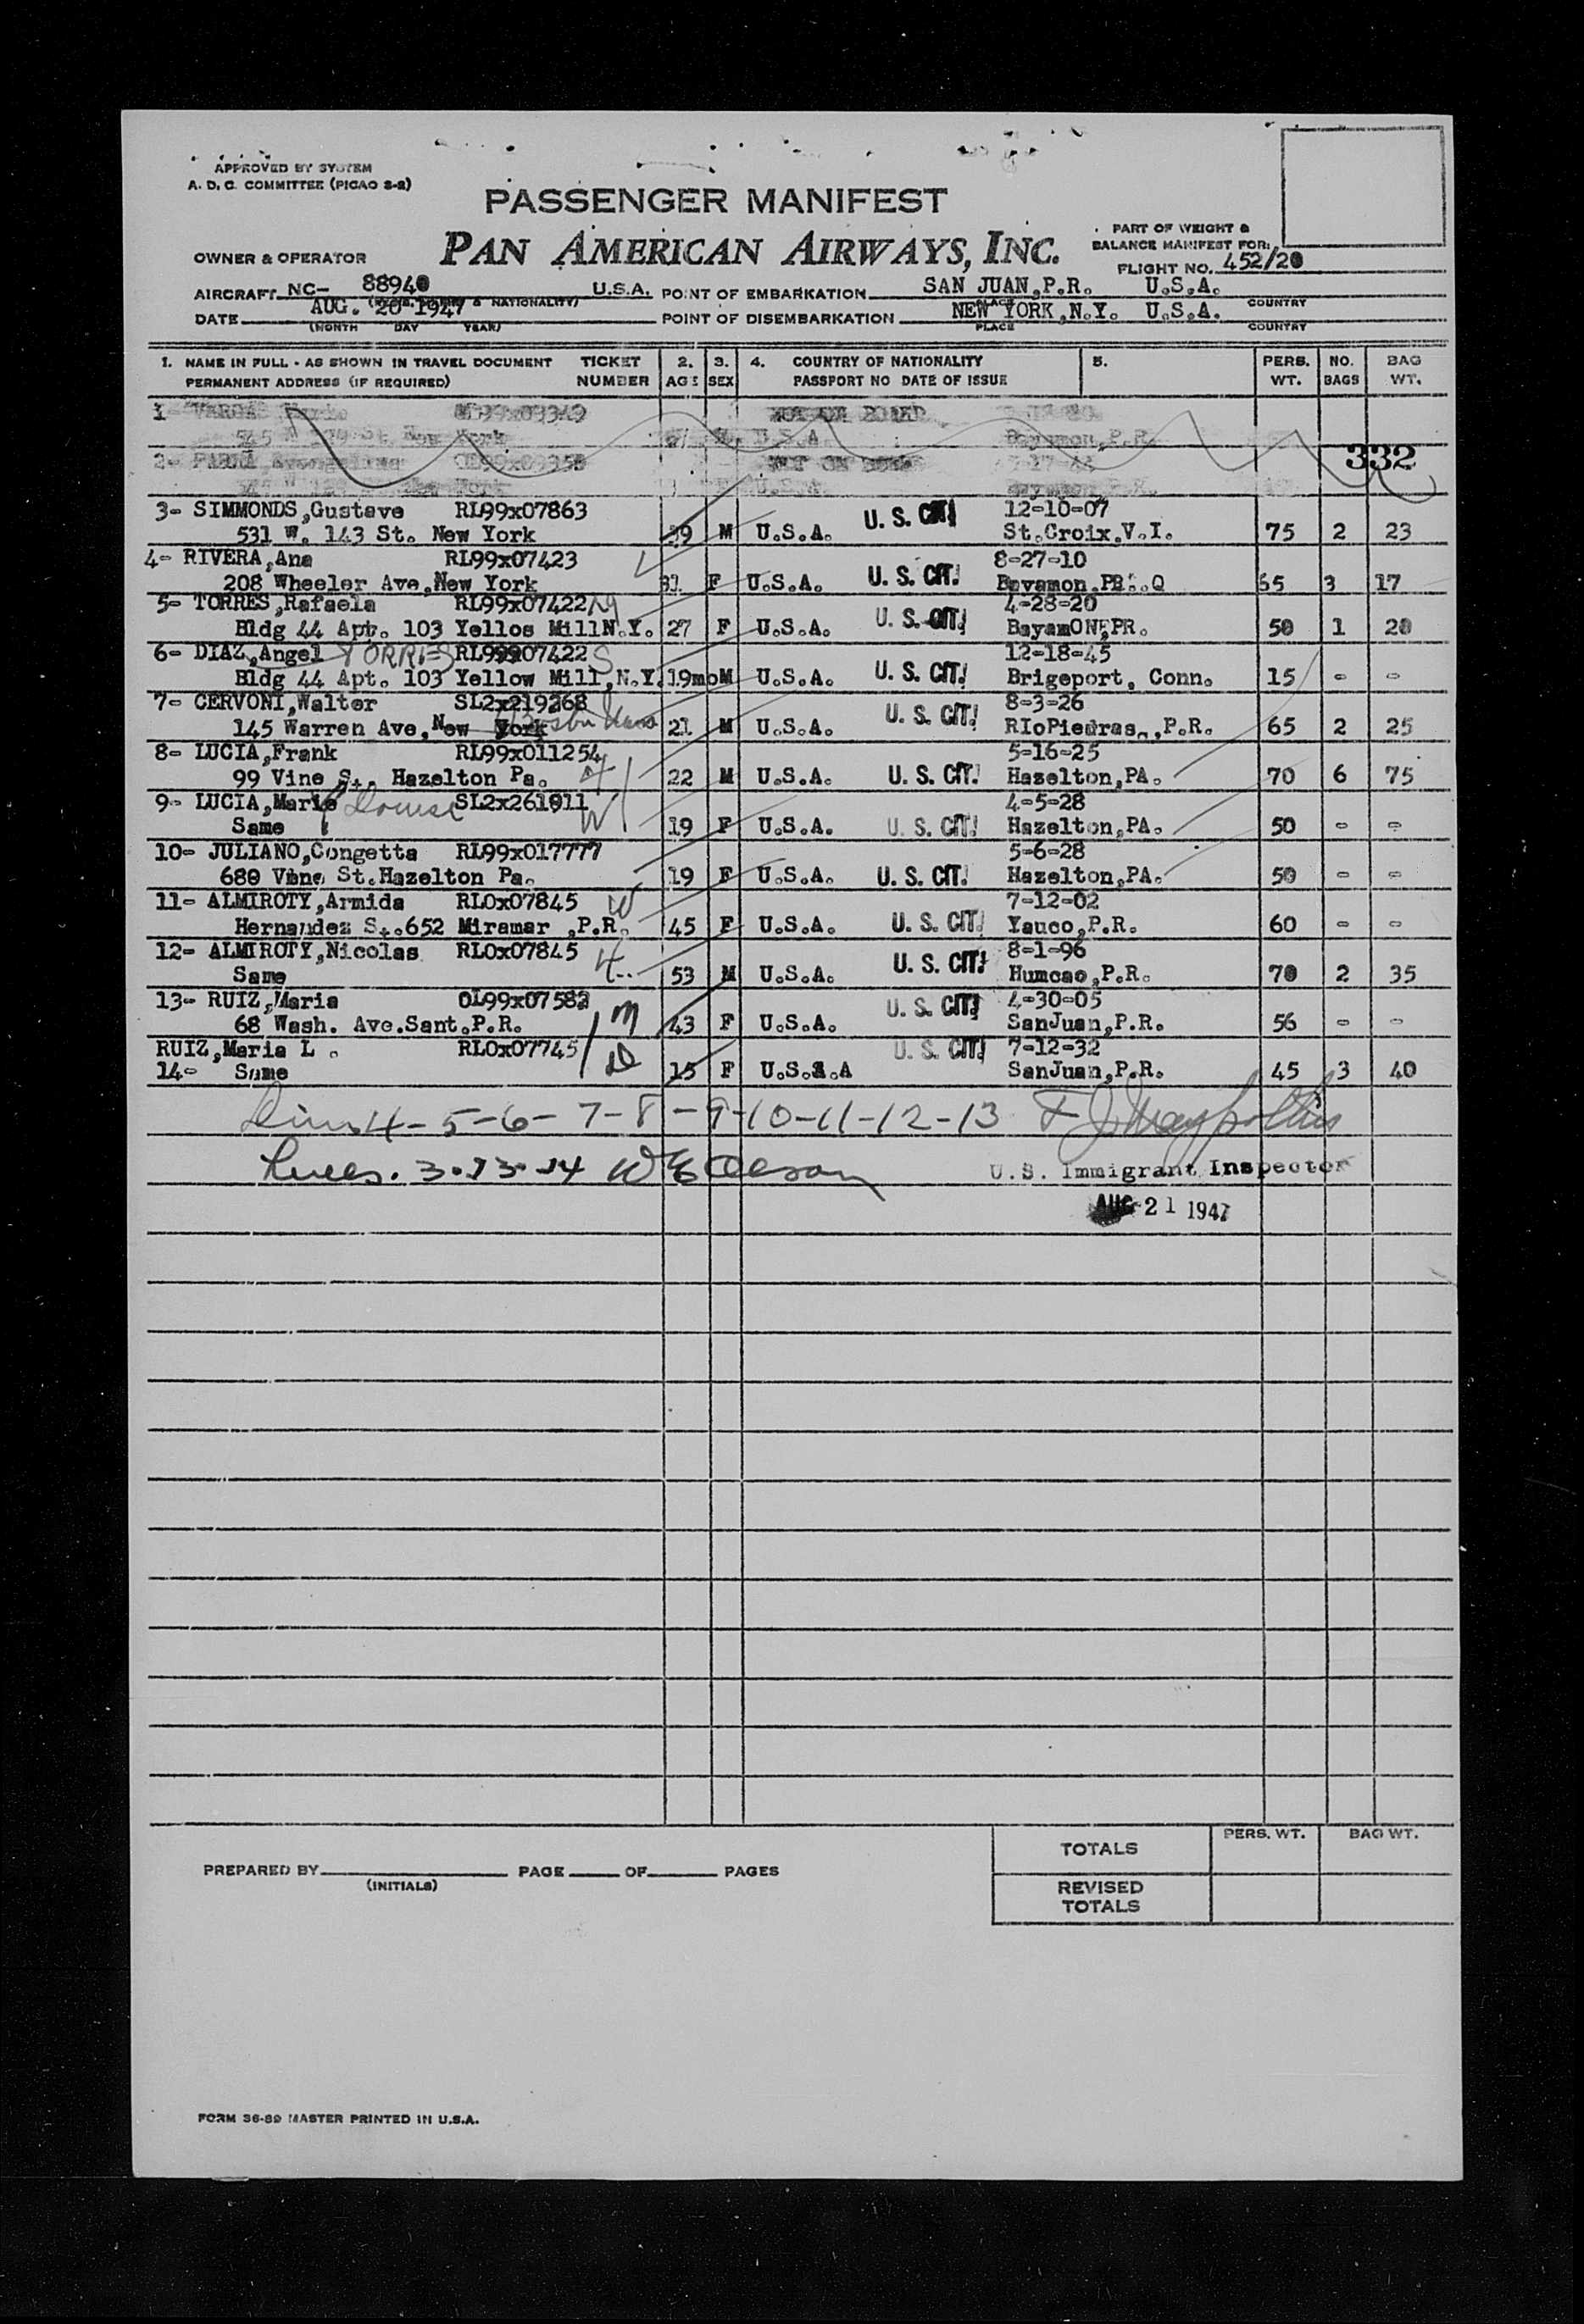 APPROVED BY SYSTEM
A. D. C. COMMITTEE (PICAO 2-2)
PASSENGER MANIFEST
PAN AMERICAN AIRWAYS, INC.
PART OF WEIGHT &
BALANCE MANIFEST FOR:
OWNER & OPERATOR
FLIGHT NO. 452/20
AIRCRAFT NC- 88940 U.S.A. POINT OF EMBARKATION SAN JUAN,P.R. U.S.A.
& NATIONALITY) PLACE COUNTRY
DATE AUG. 20 1947 POINT OF DISEMBARKATION NEW YORK,N.Y. U.S.A.
(MONTH DAY YEAR) PLACE COUNTRY
1. NAME IN FULL - AS SHOWN IN TRAVEL DOCUMENT TICKET 2. 3. 4. COUNTRY OF NATIONALITY 5. PERS. NO. BAG
PERMANENT ADDRESS (IF REQUIRED) NUMBER AGE SEX PASSPORT NO DATE OF ISSUE WT. BAGS WT.
1- VARGAS NOT ON BOARD
545 W St. New York U.S.A. Bayamon,P.R.
2- NOT ON BOARD
332
York U.S.A.
3- SIMMONDS,Gustave RL99x07863 U. S. CIT! 12-10-07
531 W. 143 St. New York 39 M U.S.A. St.Croix,V.I. 75 2 23
4- RIVERA,Ana RL99x07423 8-27-10
208 Wheeler Ave,New York 37 F U.S.A. U. S. CIT! Bayamon,PR 65 3 17
5- TORRES,Rafaela RL99x07422 4-28-20
Bldg 44 Apt. 103 Yellos Mill N.Y. 27 F U.S.A. U. S. CIT! BayamON,PR. 50 1 20
6- DIAZ,Angel TORRES RL99907422 12-18-45
Bldg 44 Apt. 103 Yellow Mill,N.Y. 19mo M U.S.A. U. S. CIT! Brigeport, Conn. 15 - -
7- CERVONI,Walter SL2x219268 8-3-26
145 Warren Ave,New York 21 M U.S.A. U. S. CIT! RIoPiedras.,P.R. 65 2 25
8- LUCIA,Frank RL99x011254 5-16-25
99 Vine St. Hazelton Pa. 22 M U.S.A. U. S. CIT! Hazelton,PA. 70 6 75
9- LUCIA,Marie Louise SL2x261911 W 4-5-28
Same 19 F U.S.A. U. S. CIT! Hazelton,PA. 50 - -
10- JULIANO,Congetta RL99x017777 5-6-28
680 Vine St.Hazelton Pa. 19 F U.S.A. U. S. CIT! Hazelton,PA. 50 - -
11- ALMIROTY,Armida RLOx07845 W 7-12-02
Hernandez St.652 Miramar ,P.R. 45 F U.S.A. U. S. CIT! Yauco,P.R. 60 - -
12- ALMIROTY,Nicolas RLOx07845 H 8-1-96
Same 53 M U.S.A. U. S. CIT! Humcao,P.R. 70 2 35
13- RUIZ,Maria OL99x07582 M U. S. CIT! 4-30-05
68 Wash. Ave.Sant.P.R. 43 F U.S.A. SanJuan,P.R. 56 - -
RUIZ,Maria L . RLOx07745 D U. S. CIT! 7-12-32
14- Same 15 F U.S.A SanJuan,P.R. 45 3 40
Lines 4-5-6-7-8-9-10-11-12-13
Lines. 3.13.14
U.S. Immigrant Inspector
AUG 21 1947
TOTALS PERS. WT. BAG WT.
PREPARED BY PAGE OF PAGES
(INITIALS)
REVISED
TOTALS
FORM 36-89 MASTER PRINTED IN U.S.A.